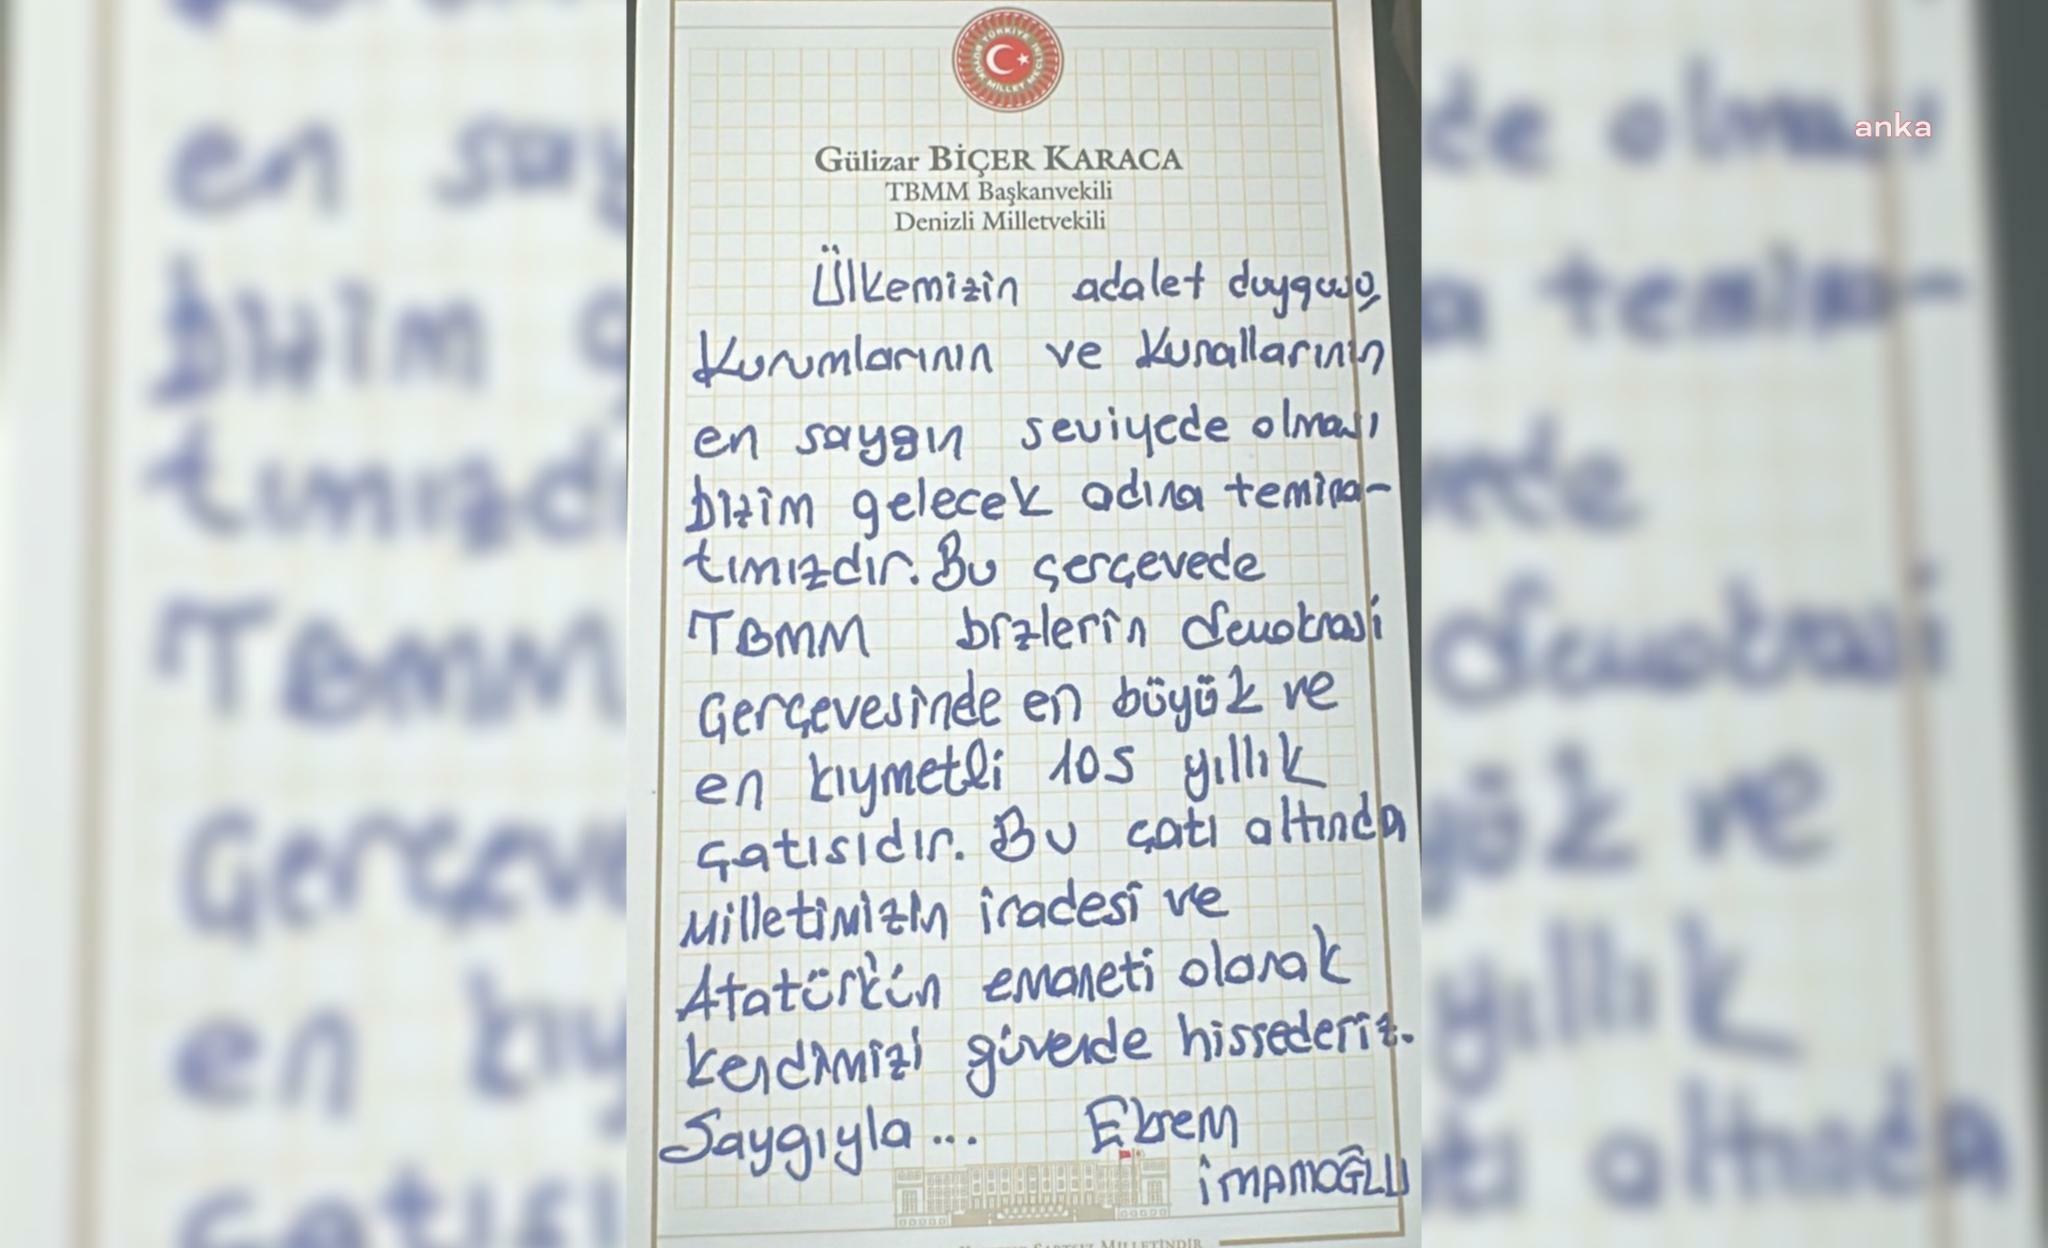 TÜRKİYE
BÜYÜK MİLLET MECLİSİ
anka
Gülizar BİÇER KARACA
TBMM Başkanvekili
Denizli Milletvekili
Ülkemizin adalet duygusu,
Kurumlarının ve Kurallarının
en saygın seviyede olması
bizim gelecek adına temina-
tımızdır. Bu çerçevede
TBMM bizlerin demokrasi
Çerçevesinde en büyük ve
en kıymetli 105 yıllık
çatısıdır. Bu çatı altında
Milletimizin iradesi ve
Atatürk'ün emaneti olarak
kendimizi güvende hissederiz.
Saygıyla... Ekrem
İMAMOĞLU
MİLLETİNDİR